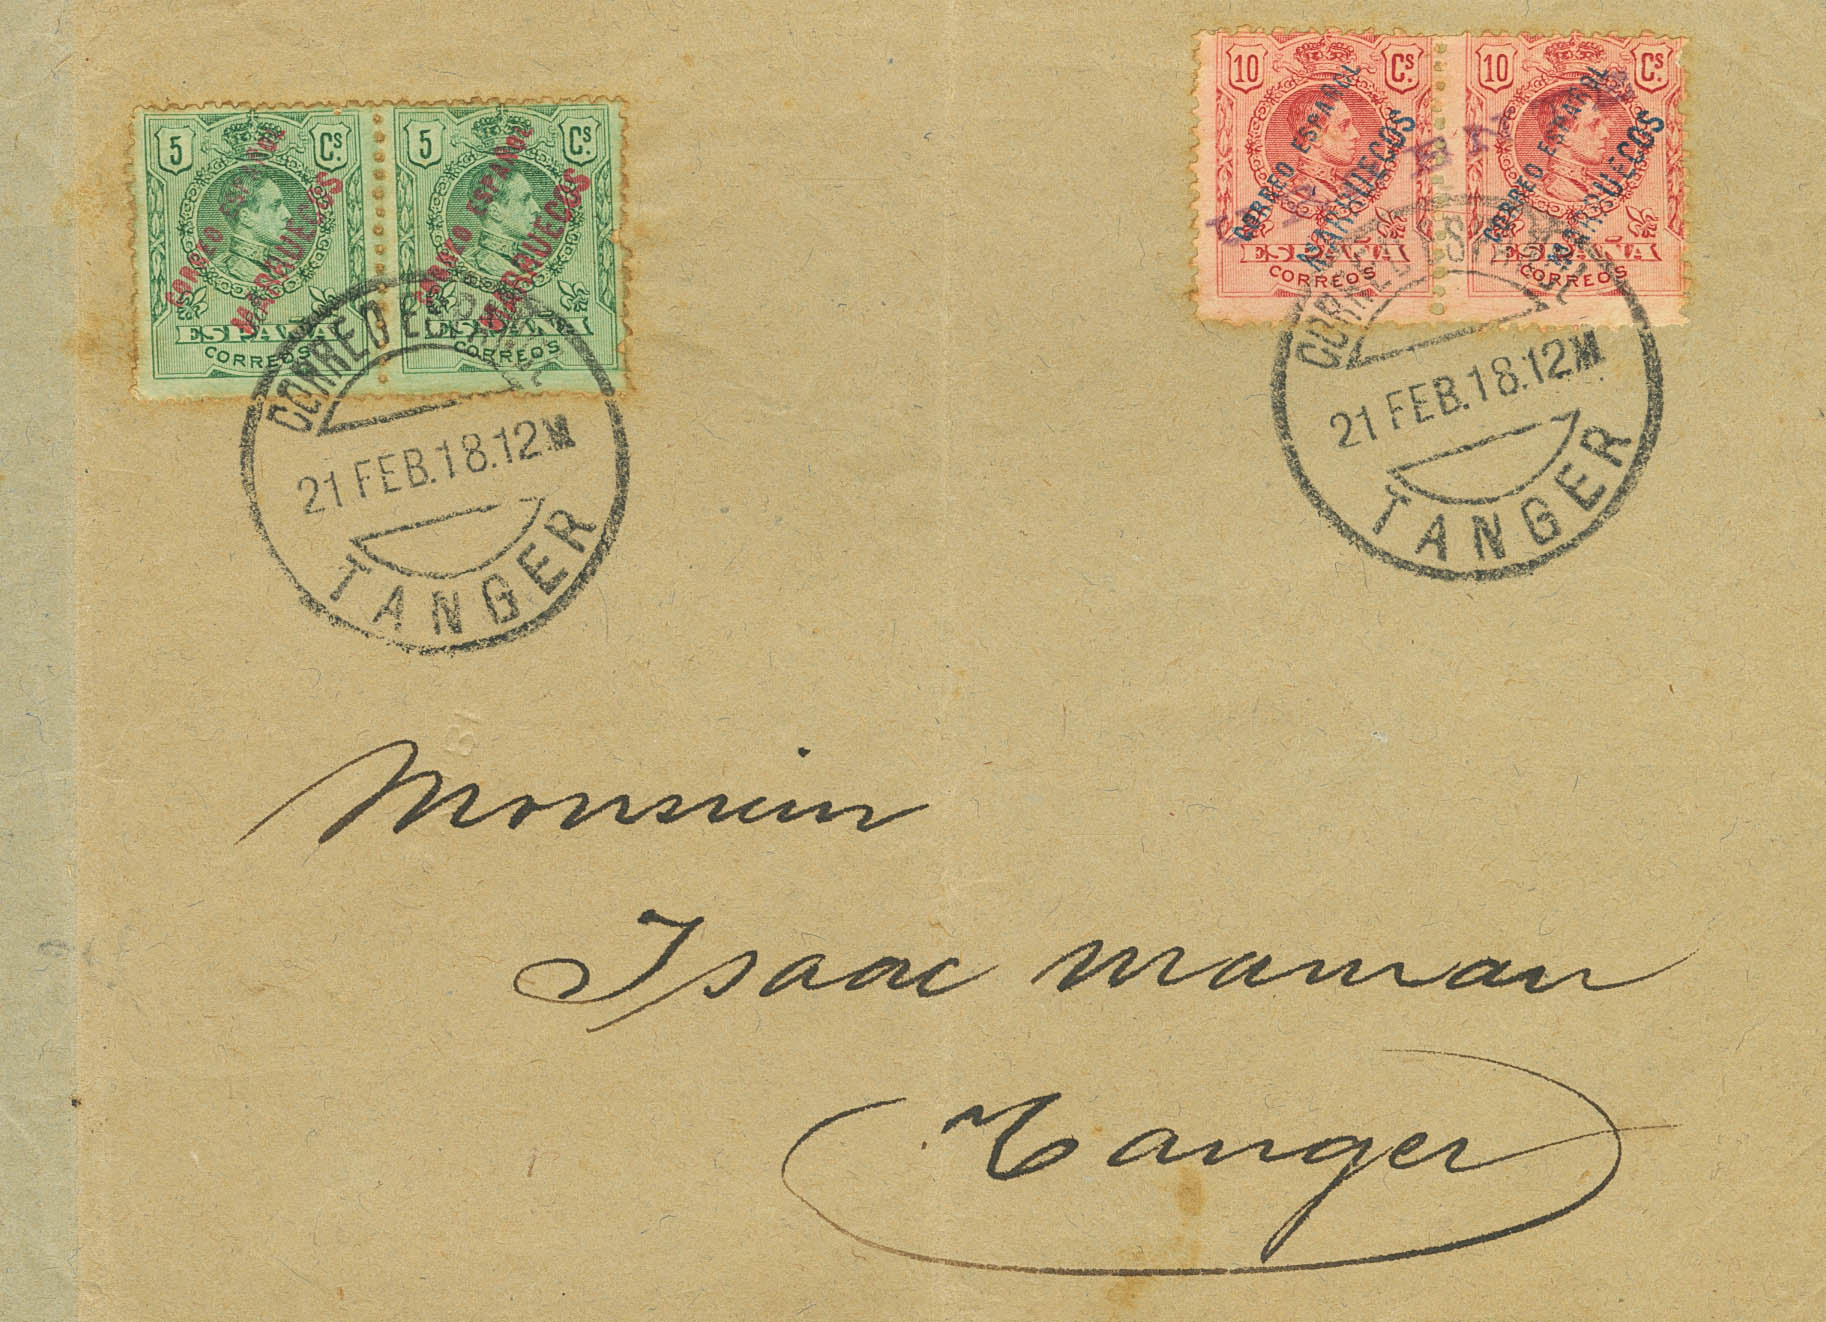 5 Cs.
CORREO ESPAÑOL
MARRUECOS
ESPAÑA
CORREOS
5 Cs.
CORREO ESPAÑOL
MARRUECOS
ESPAÑA
CORREOS
10 Cs.
CORREO ESPAÑOL
MARRUECOS
ESPAÑA
CORREOS
10 Cs.
CORREO ESPAÑOL
MARRUECOS
ESPAÑA
CORREOS
CORREO ESPAÑOL
21 FEB.18.12M
TANGER
CORREO ESPAÑOL
21 FEB.18.12M
TANGER
Monsieur
Isaac Maman
Tanger